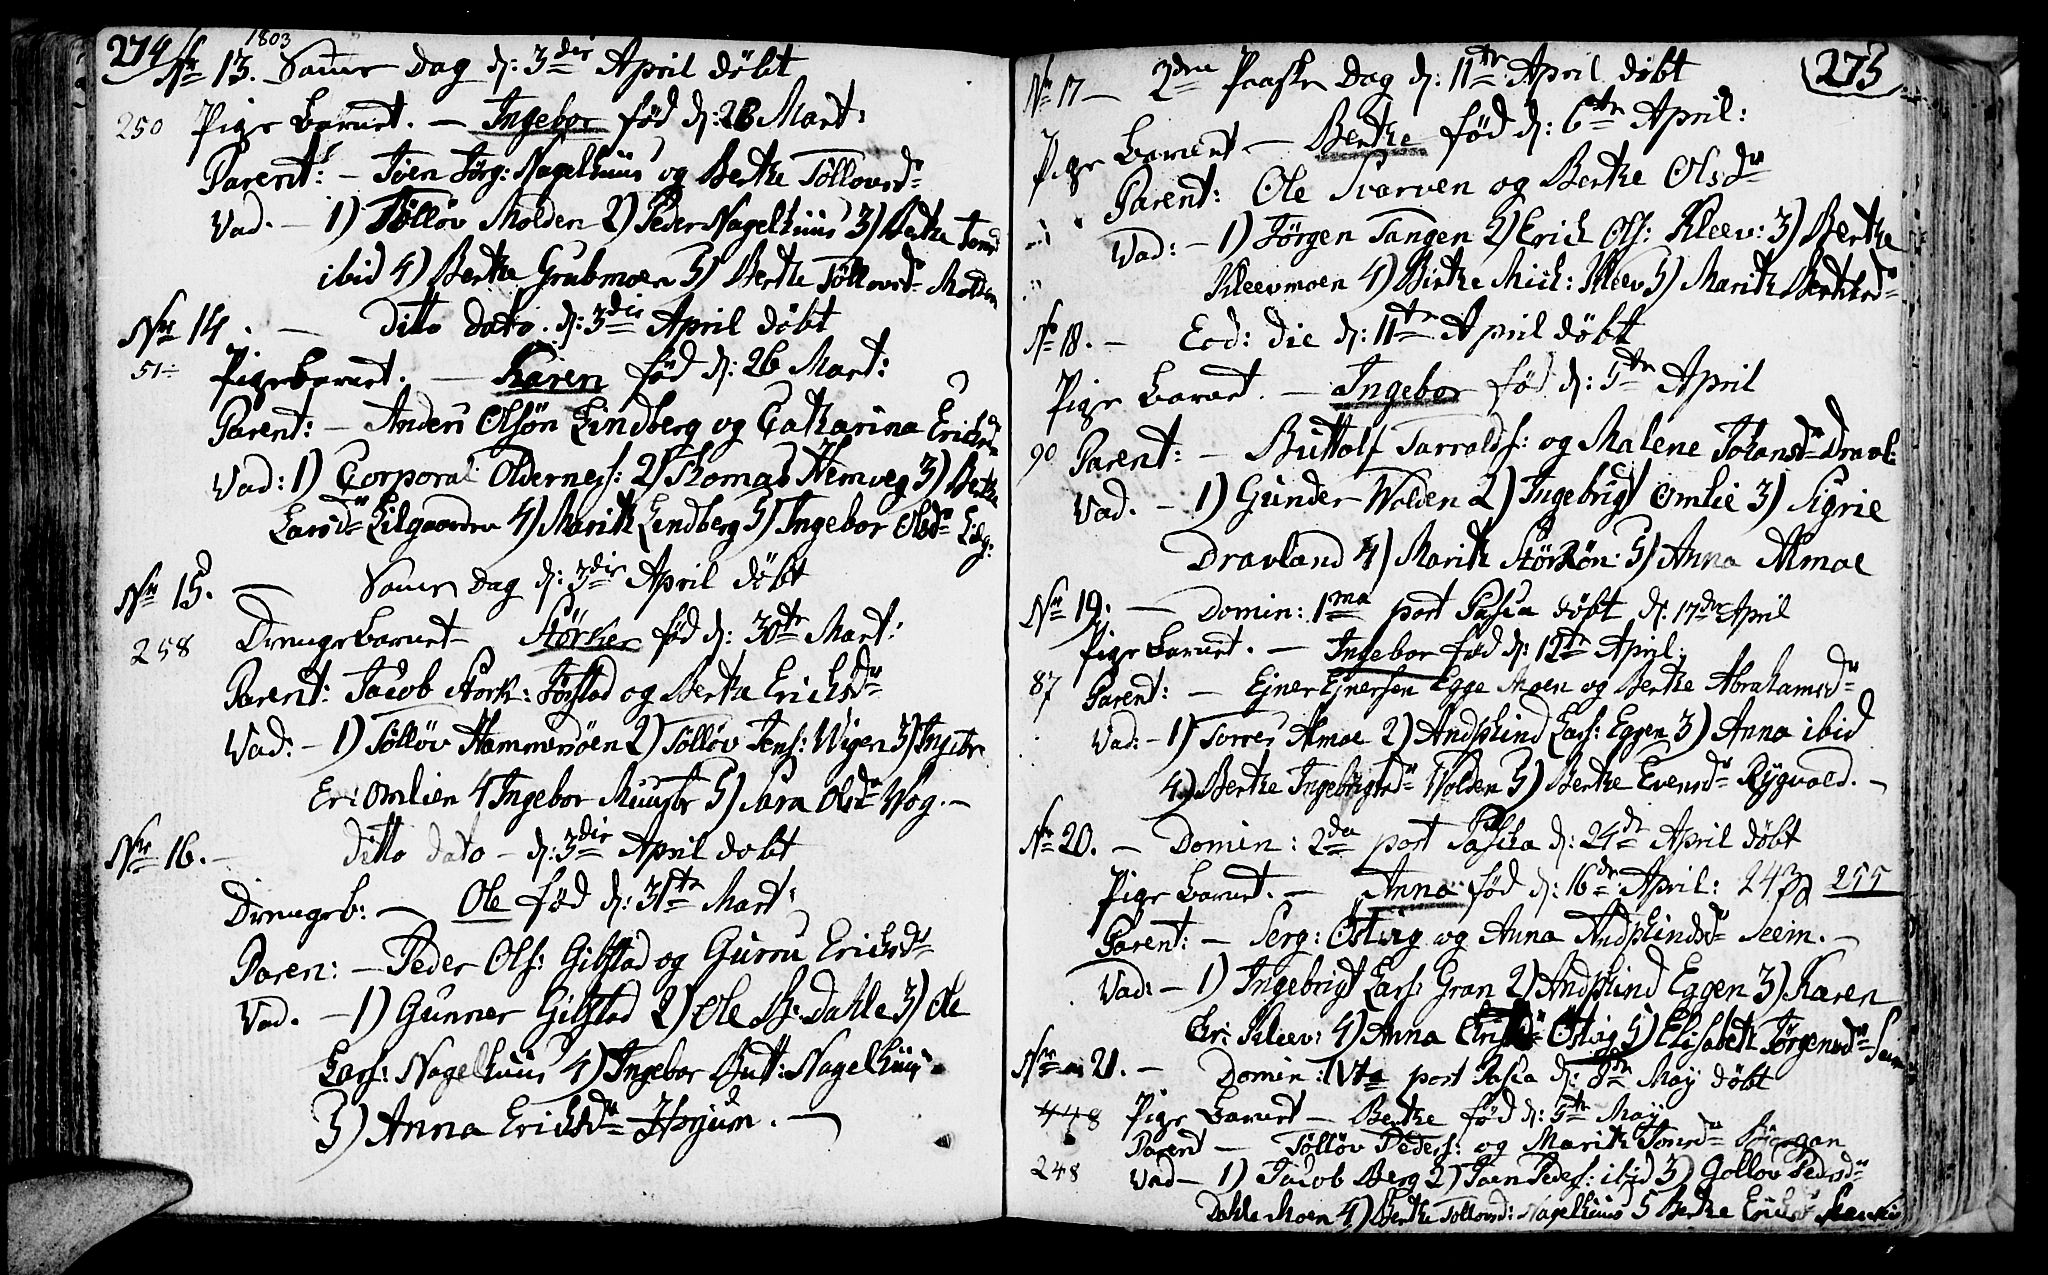 274
1803
No 13. Samr Dag d: 3die April döbt
250 Pige barnet. — Ingebor föd d: 26 Mart:
Parent: — Joen Jörg: Nagelhuus og Berthe Töllovsd:
Vad. — 1) Tölløv Molden 2) Peder Nagelhuus 3) Berthe Joensd
ibid 4) Berthe Grubmoen 5) Berthe Töllovsd: Molden
No 14. — Ditto dato. d: 3die April döbt
51 Pigebarnet. — Karen föd d: 26 Mart:
Parent: — Anders Olsön Lindberg og Catharina Ericksd
Vad: 1) Corporal Oldernes: 2) Thomas Hemveg 3) Berthe
Larsd: Lilgaarden 4) Marith Lindberg 5) Ingebor Olsd: Lilg:
No 15. — Samr Dag d: 3die April döbt
258 Drengebarnet — Störker föd d: 30te Mart:
Parent: Jacob Stork: Fosstad og Bertha Ericksd:
Vad: — 1) Tölløv Hammersöen 2) Tölløv Jens: Wigen 3) Ingebr
Er: Omlien 4 Ingebor Muustr 5) Sara Olsd: Wog. —
No 16. — Ditto dato — d: 3die April döbt
Drengeb: — Ole föd d: 31te Mart:
Paren: — Peder Ols: Gilstad og Gurru Ericksd:
Vad. — 1) Gunner Gilstad 2) Ole B: Dahle 3) Ole
Lars: Nagelhuus 4) Ingebor Butt: Nagelhuus
5) Anna Ericksd: Hojum. —
275
No 17 — 2den Paaske Dag d: 11te April döbt
Pige barnet — Berthe föd d: 6te April:
Parent: Ole Tvarven og Berthe Olsd:
Vad: — 1) Jörgen Tangen 2) Erich Ols: Kleev: 3) Berthe
Kleevmoen 4) Birthe Mich: Kleev 5) Marith Berthelsd:
No 18. — Eod: die d: 11te April döbt
Pige barnet. — Ingebor föd d: 5te April
90 Parent: — Buttolf Tarralds: og Malene Johansd: Dravl:
Vad. — 1) Gunder Wolden 2) Ingebrigt Omlie 3) Sigrie
Dravland 4) Marith Störkön: 5) Anna Almoe
No 19. — Domin: 1ma post Pasca döbt d: 17de April
Pige barnet. — Ingebor föd d: 12te April:
87 Parent: — Ejner Ejnersen Egge Moen og Berthe Abrahamsd:
Vad: — 1) Torres Almoe 2) Andskind Lars: Eggen 3) Anna ibid
4) Berthe Ingebrigtsd: Wolden 5) Berthe Evensd: Rygvold. —
No 20. — Domin: 2da post Pasca d: 24de April döbt
Pige barnet. — Anna föd d: 16de April: 243 255
Parent: — Serg: Östvig og Anna Andskindsd: Seem. —
Vad: — 1) Ingebrigt Lars: Gran 2) Andskind Eggen 3) Karen
Er: Kleev: 4) Anna Östvig 5) Elisabeth Jörgensd: Seem
No 21. — Domin: IVta post Pasca d: 8de May döbt
448 Pige barnet — Berthe föd d: 5te May
Parent — Tölløv Peders: og Marith Joensd: Biörgan
248 Vad — 1) Jacob Berg 2) Joen Peders: ibid 3) Golløv Pedersd:
Dahlemoen 4) Berthe Tollovsd: Nagelhuus 5 Berthe Ericksd: